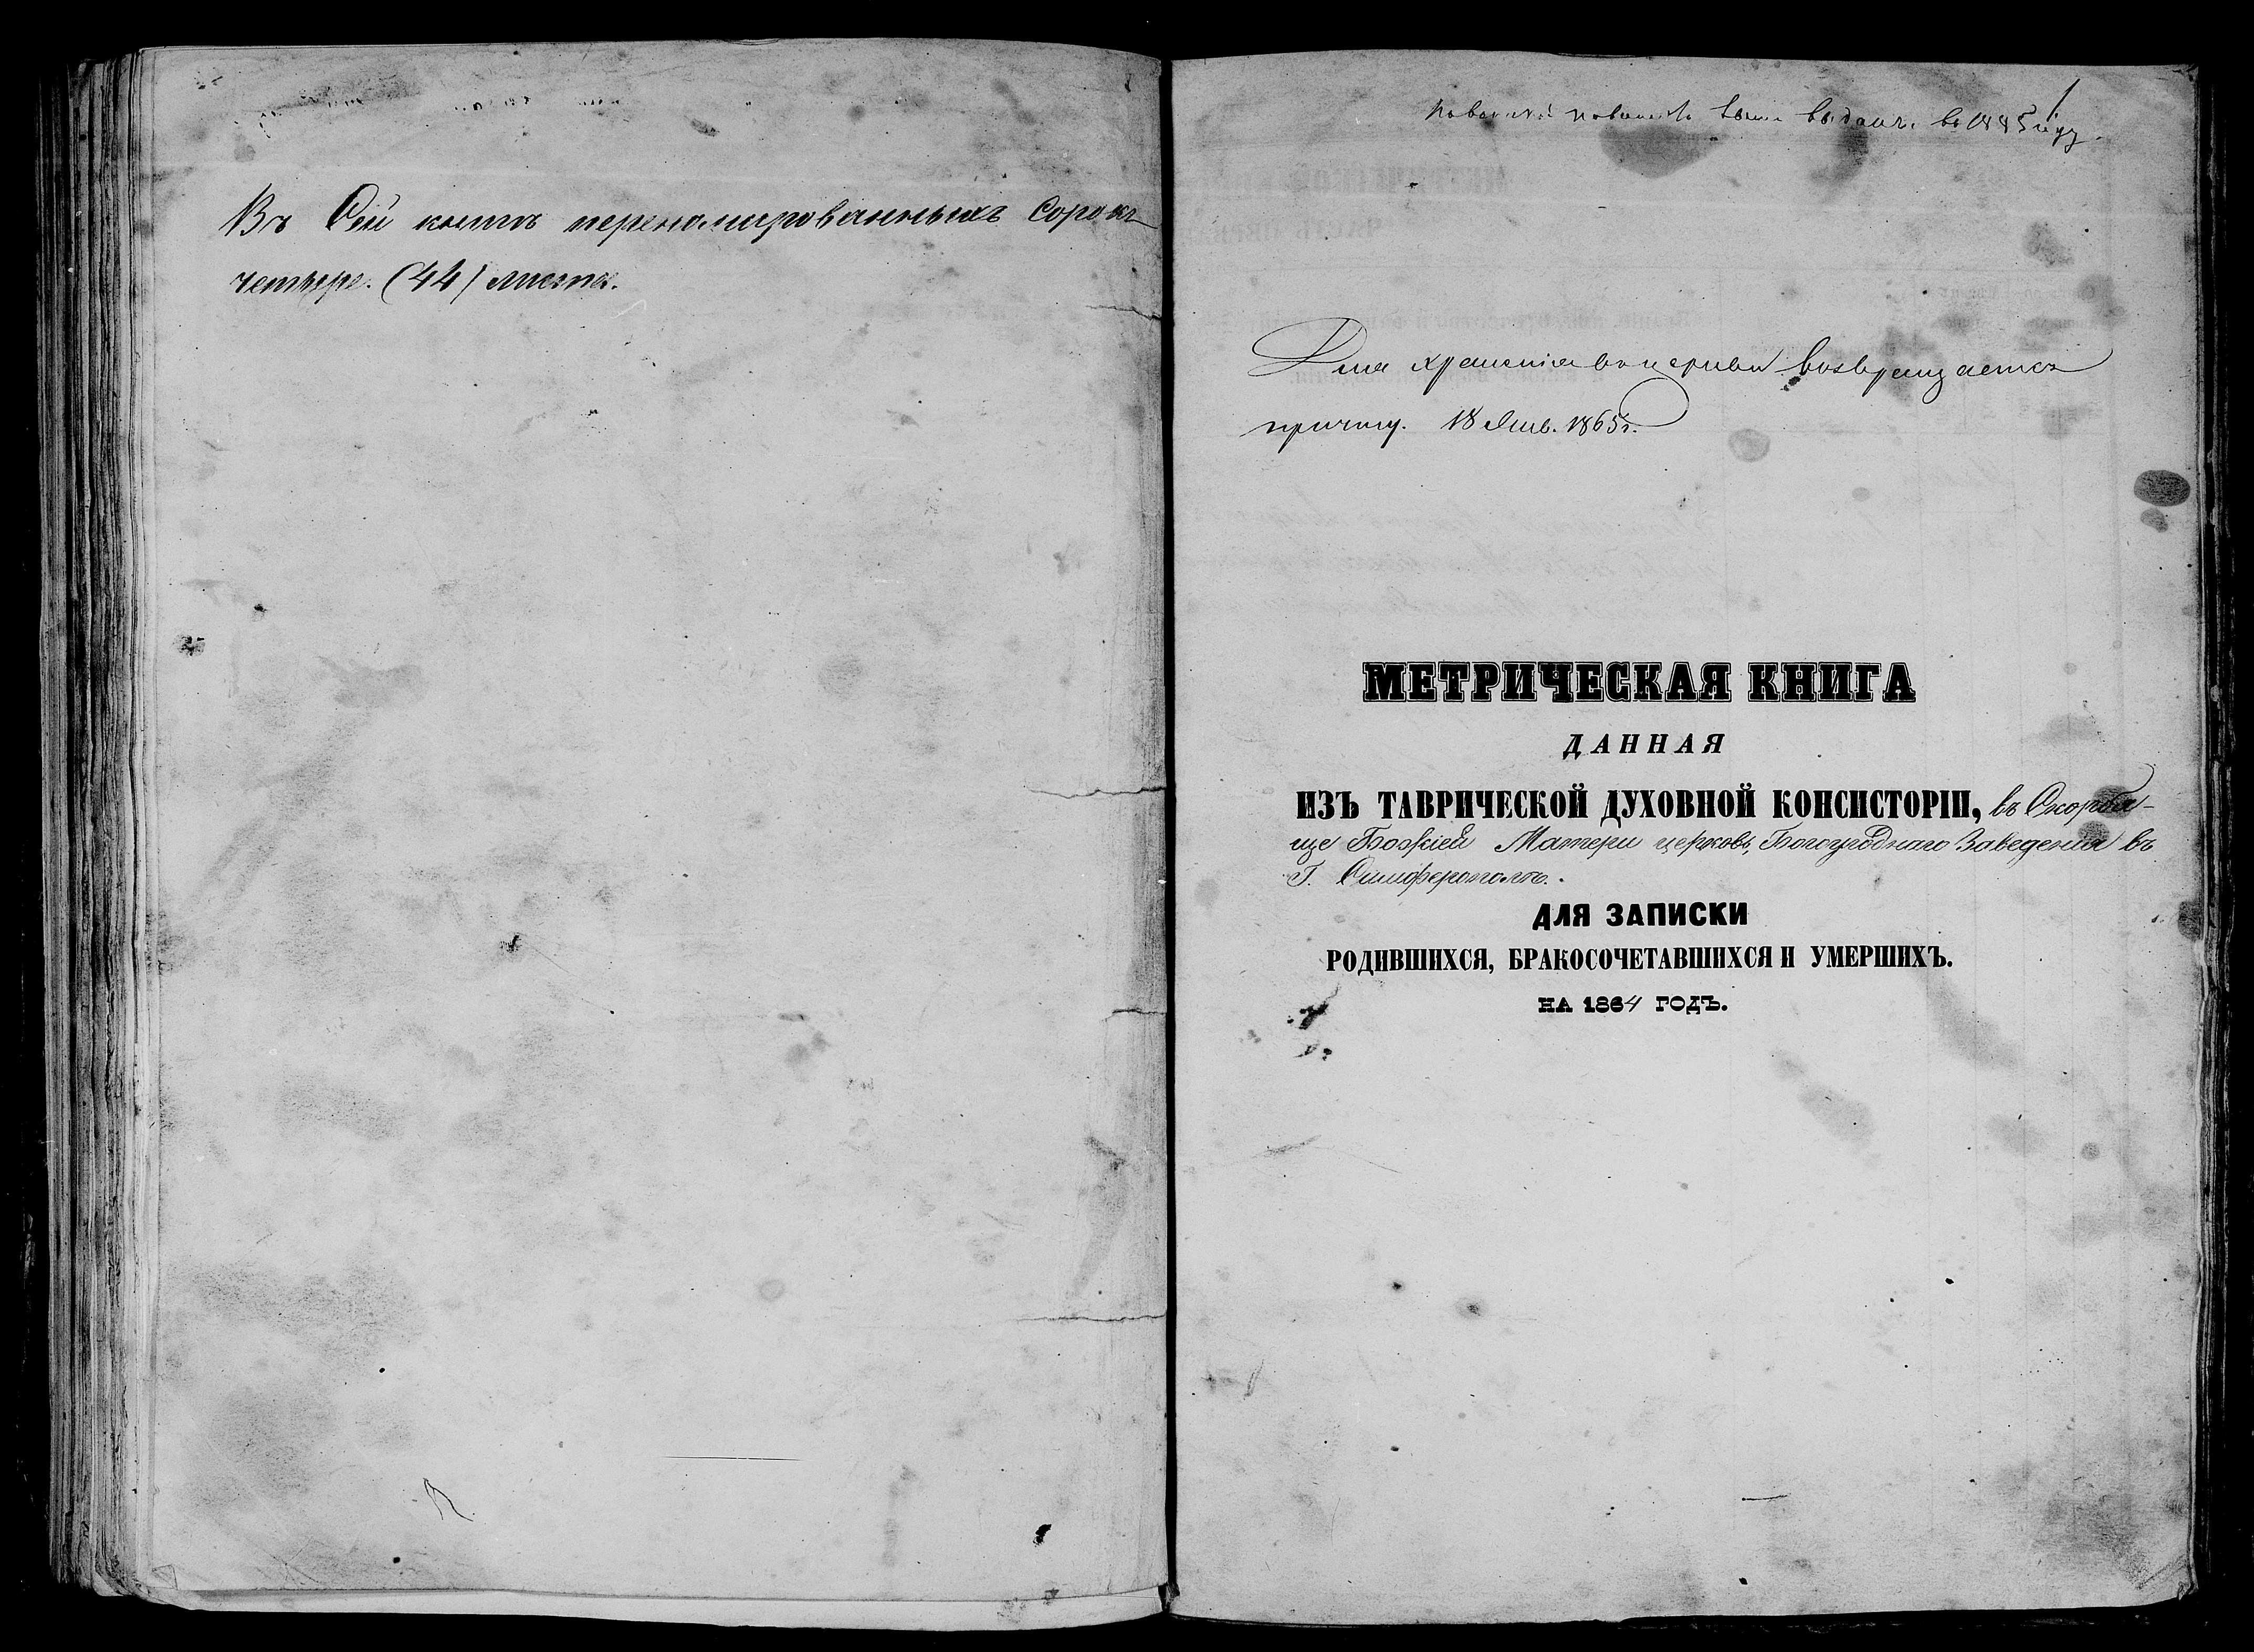 Въ Сей книгѣ перенамированныхъ Сорокъ
четыре. (44) листа.
1
выданъ въ 1885 году.
Для храненія въ церкви возвращается
причту. 18 Янв. 1865 г.
МЕТРИЧЕСКАЯ КНИГА
ДАННАЯ
ИЗЪ ТАВРИЧЕСКОЙ ДУХОВНОЙ КОНСИСТОРІИ, въ Скорбя-
ще Божіей Матери церковь, Богоугоднаго Заведенія въ
Г. Симферополѣ.
ДЛЯ ЗАПИСКИ
РОДИВШИХСЯ, БРАКОСОЧЕТАВШИХСЯ И УМЕРШИХЪ.
НА 1864 ГОДЪ.